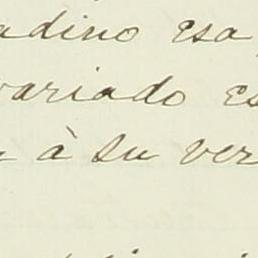 adino esa
variado es
à su ver